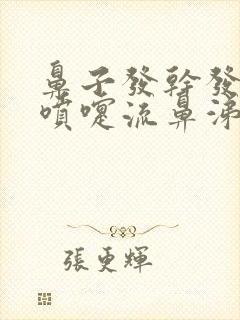 鼻子發幹發
噴嚏流鼻涕
張更輝